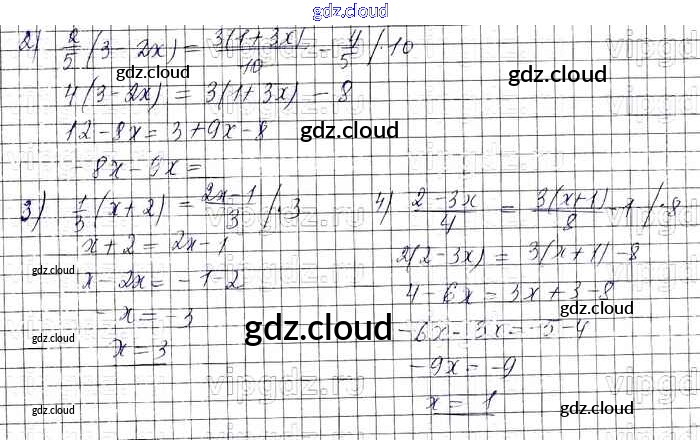 gdz.cloud
2) 2/5 (3 - 2x) = 3(1+3x)/10 - 4/5 /·10
4(3-2x) = 3(1+3x) - 8
12 - 8x = 3 + 9x - 8
-8x - 9x =
3) 1/3 (x+2) = 2x-1/3 /·3
x+2 = 2x-1
x - 2x = -1-2
-x = -3
x = 3
4) 2-3x/4 = 3(x+1)/8 - 1 /·8
2(2-3x) = 3(x+1) - 8
4 - 6x = 3x + 3 - 8
-6x - 3x = -5 - 4
-9x = -9
x = 1
gdz.cloud
gdz.cloud
gdz.cloud
gdz.cloud
gdz.cloud
gdz.cloud
gdz.cloud
gdz.cloud
gdz.cloud